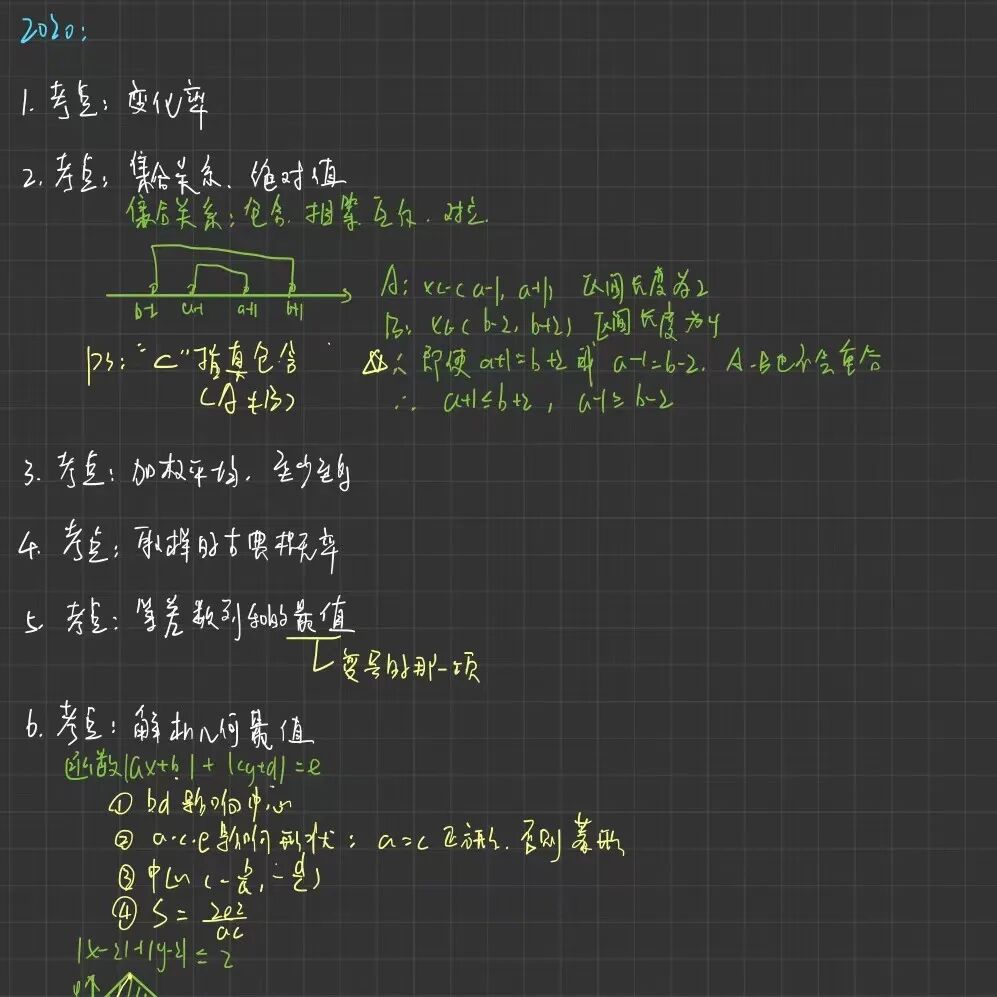 2020:
1. 考点: 变化率
2. 考点: 集合关系、绝对值
集合关系: 包含. 相等 互斥. 对立.
b-2 a-1 a+1 b+1
A: x∈(a-1, a+1) 区间长度为2
B: x∈(b-2, b+2) 区间长度为4
ps: "⊂"指真包含
(A≠B)
∴ 即使 a+1=b+2 或 a-1=b-2. A、B也不会重合
∴ a+1≤b+2, a-1≥b-2
3. 考点: 加权平均. 至少至多
4. 考点: 取样的古典概率
5. 考点: 等差数列和的最值
变号的那一项
6. 考点: 解析几何最值
函数|ax+b|+|cy+d|=e
① bd 影响中心
② a·c·e影响形状: a=c 正方形. 否则菱形
③ 中心 (-b/a, -d/c)
④ S = 2e²/ac
|x-2|+|y-2| ≤ 2
y